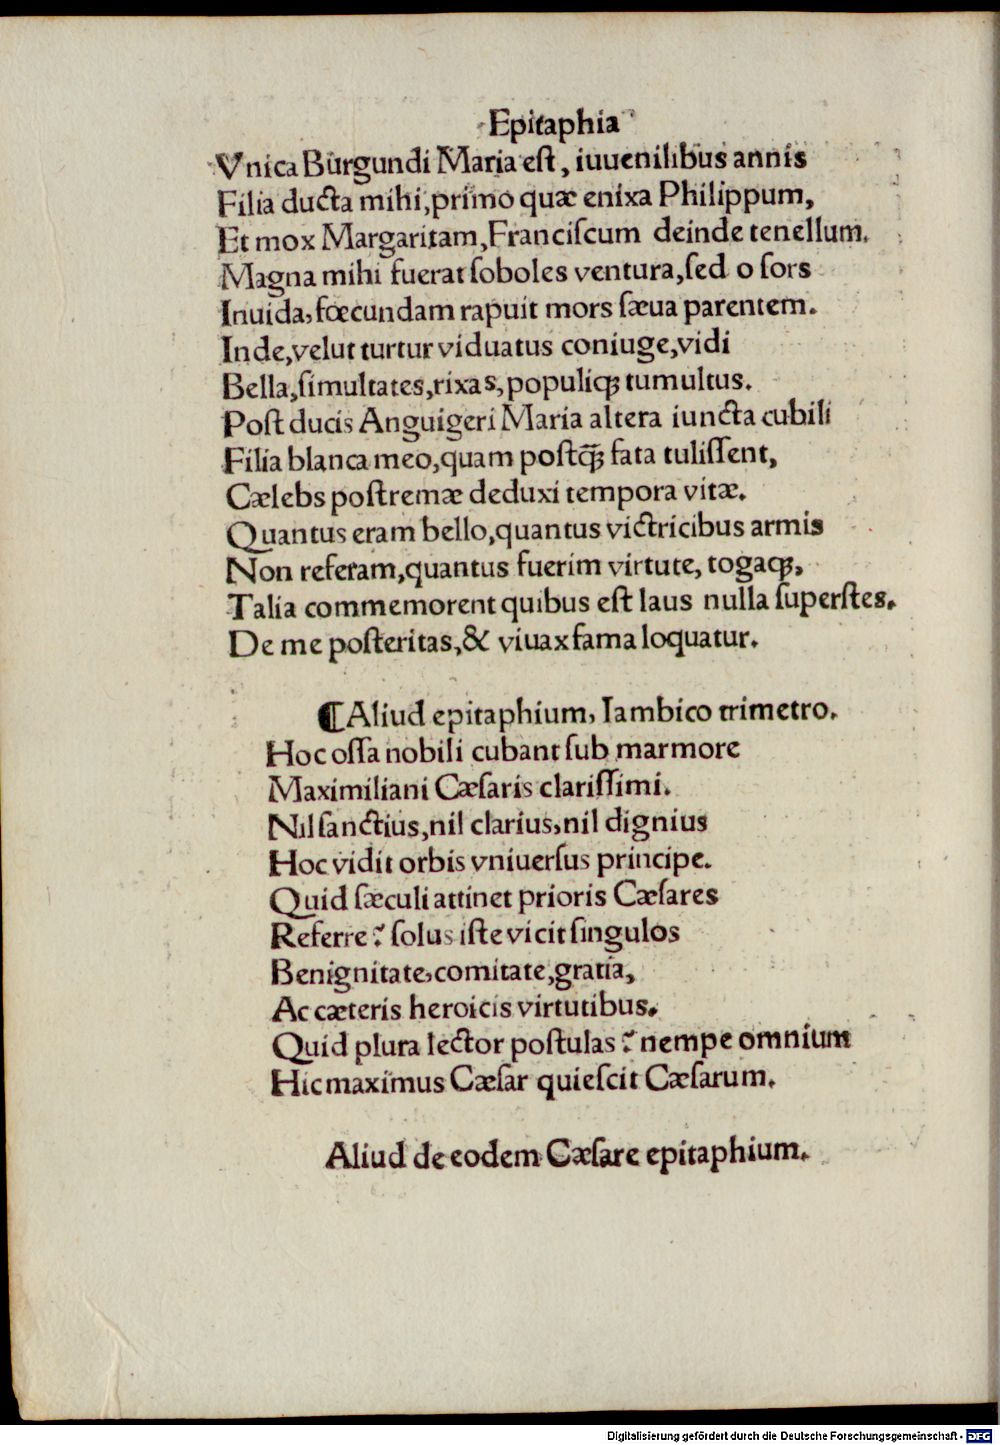 Epitaphia
Vnica Burgundi Maria est, iuuenilibus annis
Filia ducta mihi, primo quæ enixa Philippum,
Et mox Margaritam, Franciſcum deinde tenellum.
Magna mihi fuerat ſoboles ventura, ſed o ſors
Inuida, fœcundam rapuit mors ſæua parentem.
Inde, velut turtur viduatus coniuge, vidi
Bella, ſimultates, rixas, populiqꝫ tumultus.
Poſt ducis Anguigeri Maria altera iuncta cubili
Filia blanca meo, quam poſtq̄ꝫ fata tuliſſent,
Cælebs poſtremæ deduxi tempora vitæ.
Quantus eram bello, quantus victricibus armis
Non referam, quantus fuerim virtute, togaqꝫ,
Talia commemorent quibus eſt laus nulla ſuperſtes.
De me poſteritas, & viuax fama loquatur.
¶Aliud epitaphium, Iambico trimetro.
Hoc oſſa nobili cubant ſub marmore
Maximiliani Cæſaris clariſſimi.
Nil ſanctius, nil clarius, nil dignius
Hoc vidit orbis vniuerſus principe.
Quid ſæculi attinet prioris Cæſares
Referre? ſolus iſte vicit ſingulos
Benignitate, comitate, gratia,
Ac cæteris heroicis virtutibus.
Quid plura lector poſtulas? nempe omnium
Hic maximus Cæſar quieſcit Cæſarum.
Aliud de eodem Cæſare epitaphium.
Digitalisierung gefördert durch die Deutsche Forschungsgemeinschaft - DFG